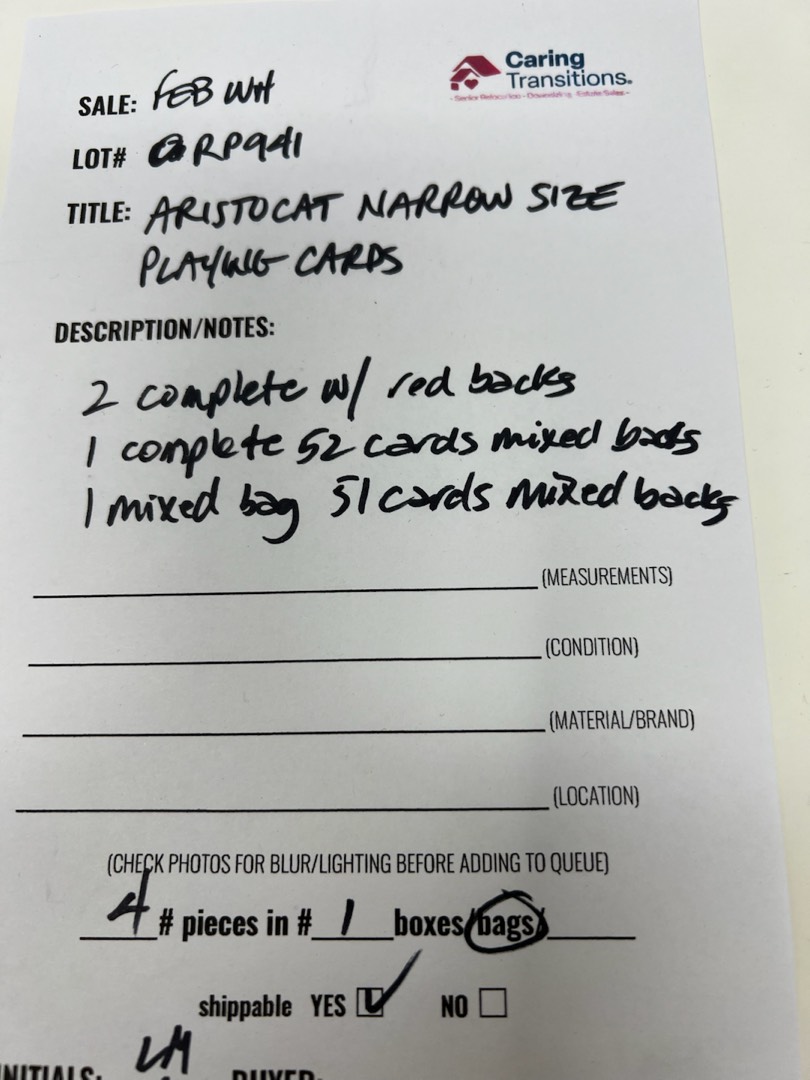 Caring
Transitions®
- Senior Relocation - Downsizing - Estate Sales -
SALE: FEB WH
LOT# RP941
TITLE: ARISTOCAT NARROW SIZE
PLAYING CARDS
DESCRIPTION/NOTES:
2 complete w/ red backs
1 complete 52 cards mixed backs
1 mixed bag 51 cards mixed backs
(MEASUREMENTS)
(CONDITION)
(MATERIAL/BRAND)
(LOCATION)
(CHECK PHOTOS FOR BLUR/LIGHTING BEFORE ADDING TO QUEUE)
4 # pieces in # 1 boxes/bags/
shippable YES NO
INITIALS: LM BUYER: